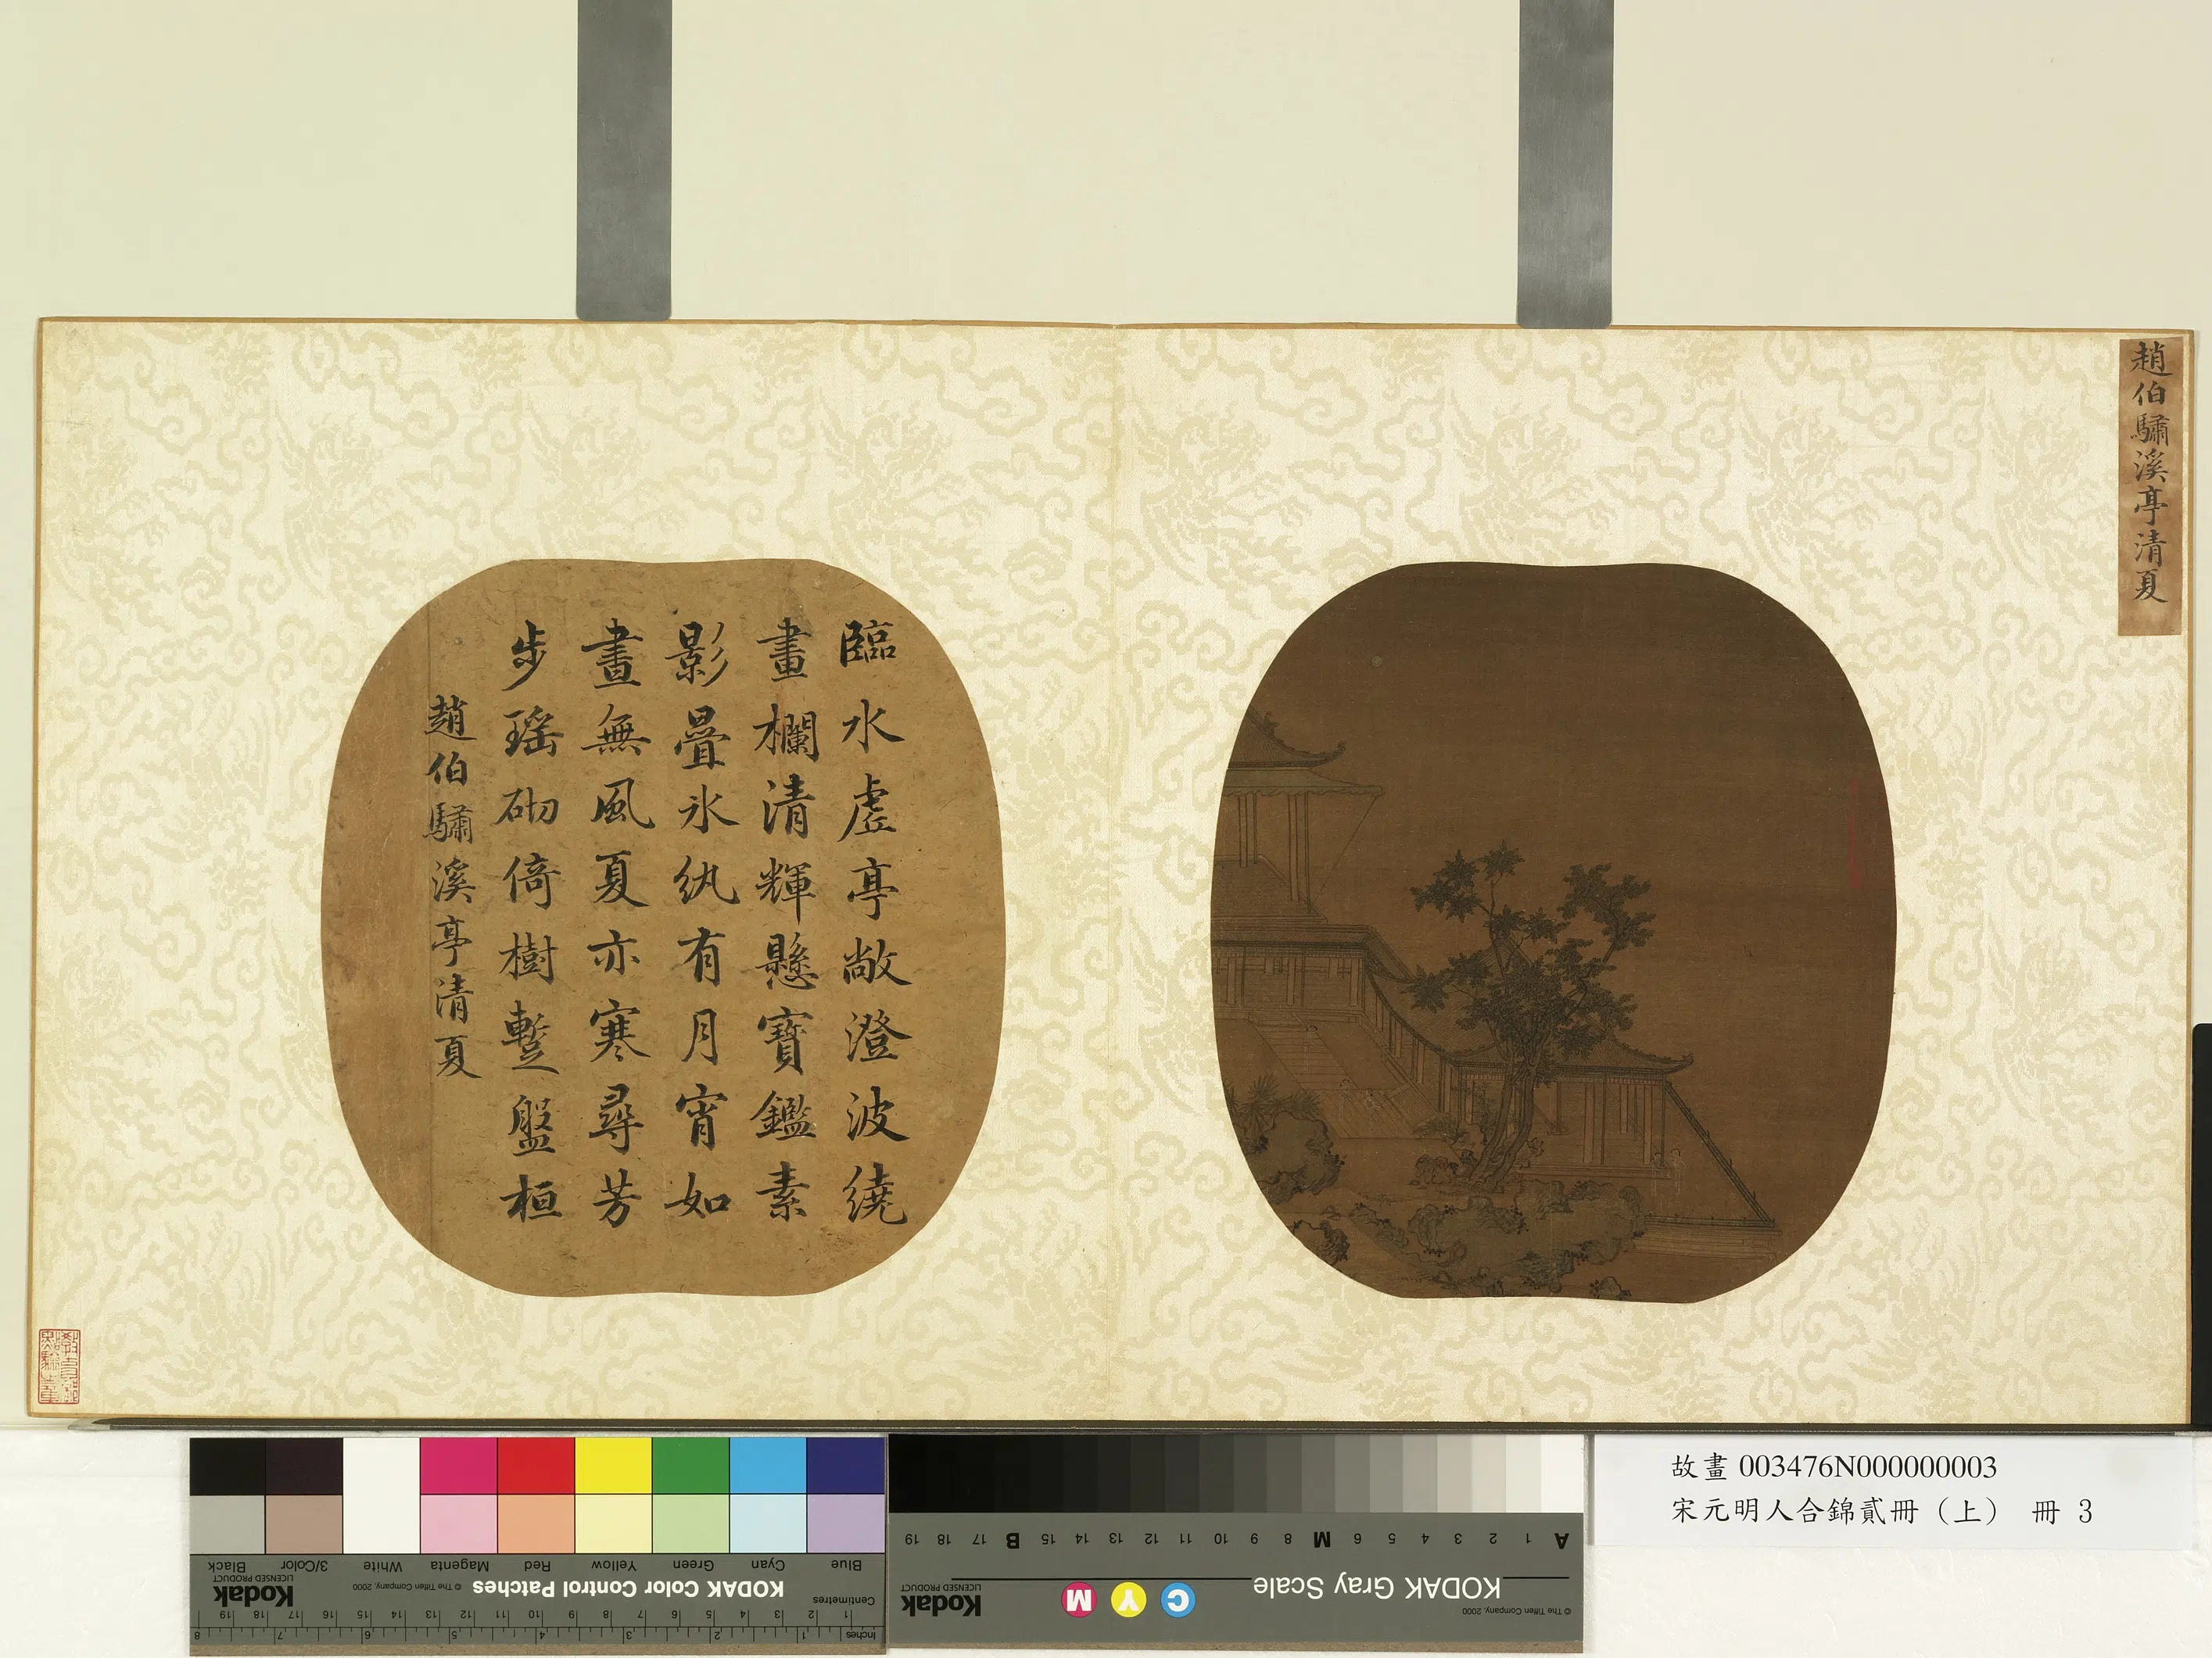 趙伯驌溪亭清夏
臨水虛亭敞澄波繞
畫欄清輝懸寶鑑素
影疊氷紈有月宵如
晝無風夏亦寒尋芳
步瑤砌倚樹蹔盤桓
趙伯驌溪亭清夏
故畫 003476N000000003
宋元明人合錦貳冊（上） 冊 3
Blue Cyan Green Yellow Red Magenta White 3/Color Black
KODAK Color Control Patches
© The Tiffen Company, 2000
Kodak
LICENSED PRODUCT
Centimetres
1 2 3 4 5 6 7 8 9 10 11 12 13 14 15 16 17 18 19
Inches
1 2 3 4 5 6 7 8
A 1 2 3 4 5 6 M 8 9 10 11 12 13 14 15 B 17 18 19
KODAK Gray Scale
C Y M
Kodak
LICENSED PRODUCT
© The Tiffen Company, 2000